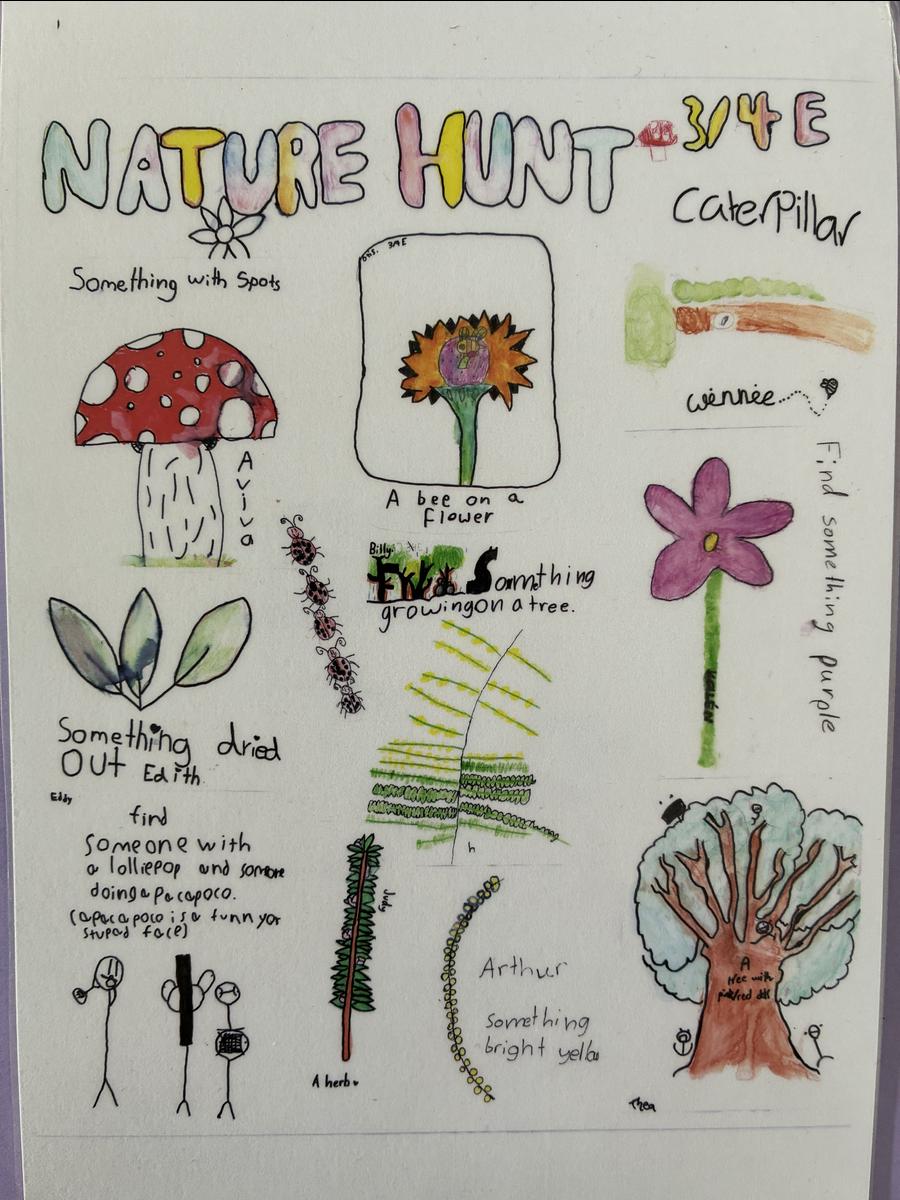 NATURE HUNT 3/4 E
Something with Spots
Aviva
3/4 E
A bee on a
flower
Caterpillar
winnie
Find something purple
Billy
Somthing
growing on a tree.
Something dried
Out Edith
Eddy
find
someone with
a lolliepop and somone
doing a pacapoco.
(apacapoco is a funny or
stupad face)
Judy
A herb
h
Arthur
something
bright yellow
A
tree with
pink/red dots
Thea